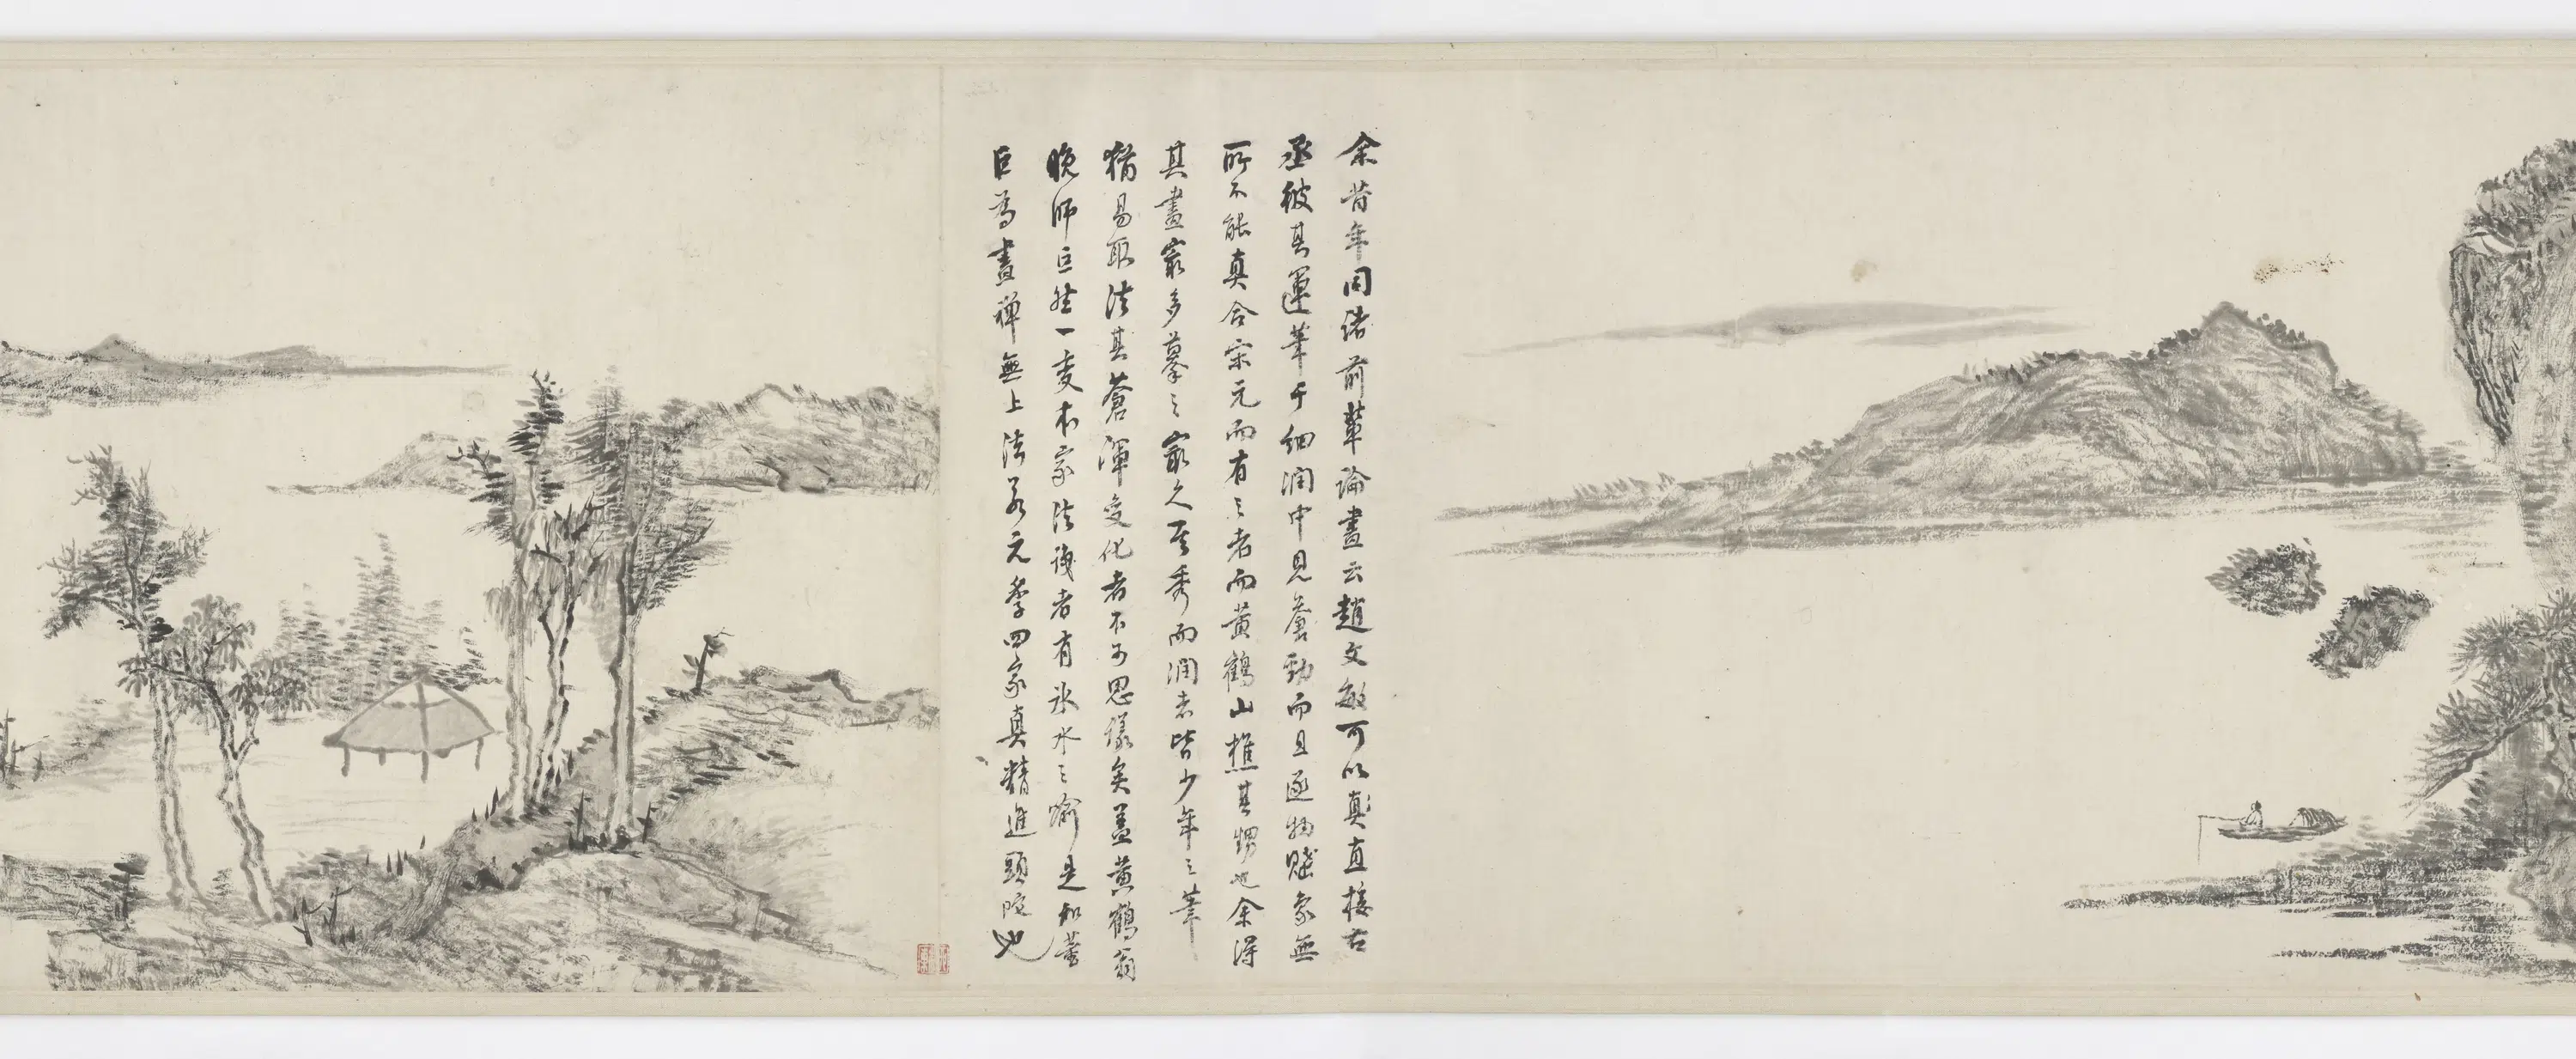 余昔年同諸前輩論畫云趙文敏可以真直接古
丞彼其運筆于細潤中見蒼勁而且逐物賦象無
所不能真合宋元而有之者而黃鶴山樵其甥也余得
其畫最多摹之最久至秀而潤者皆少年之筆
猶易取法其蒼渾變化者不可思議矣蓋黃鶴翁
晚師巨然一變本家法識者有冰水之喻是知董
巨為畫禪無上法若元季四家真精進頭陀也